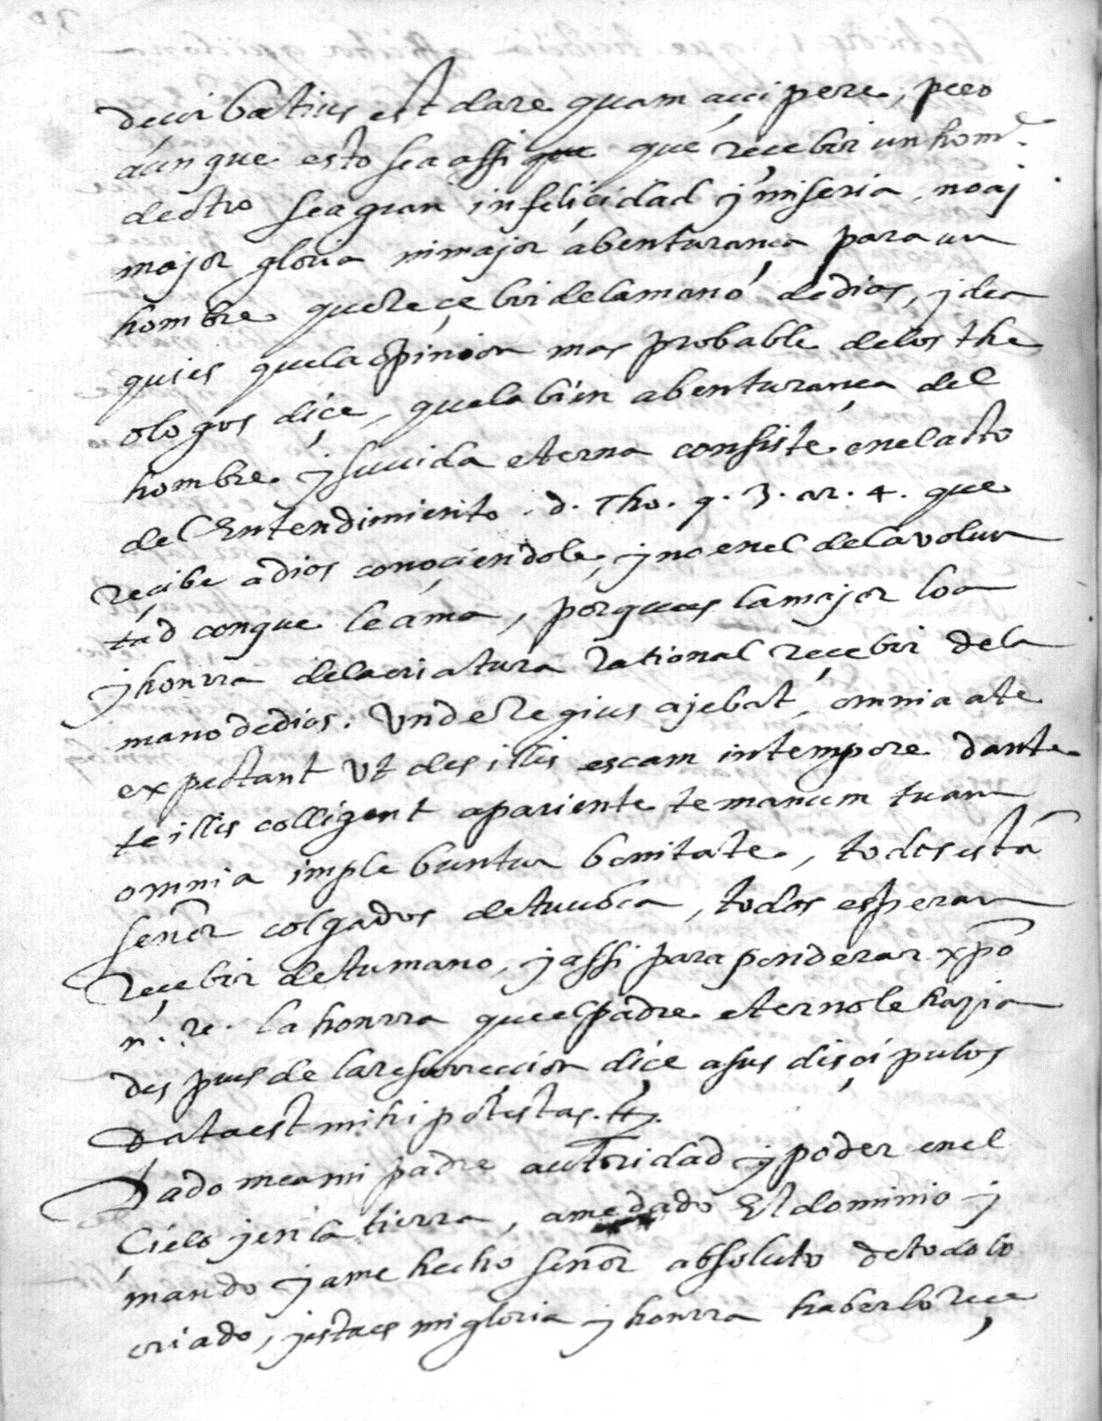 decir batius est dare quam accipere, pero
aunque esto sea assi que que reçebir un homᵉ.
de otro sea gran infelicidad y miseria, no aj
major gloria ni major abenturança para un
hombre que reçebir de la mano de dios, y de a
qui es que la opinion mas probable de los the
ologos diçe, que la bien abenturança del
hombre y su uida eterna consiste en el acto
del Entendimiento . d. Tho. q. 3. ar. 4. que
recibe a dios conoçiendole, y no en el de la volun
tad con que le ama, porque es la major loa
y honrra de la criatura rational reçebir de la
mano de dios. Unde regius ajebat, omnia a te
expectant ut des illis escam in tempore dante
te illis colligent apariente te manum tuam
omnia implebuntur bonitate, todos está
señor colgados de tu uoca, todos esperan
reçebir de tu mano, y assi para ponderar xpo
n. re. la honrra que el padre eterno le hazia
despues de la resurreccion diçe a sus disçipulos
Data est mihi potestas. &.
Dado me a mi padre autoridad y poder en el
Çielo y en la tierra, a me dado El dominio y
mando y a me hecho señor absoluto de todo lo
criado, y esta es mi gloria y honrra haberlo reçe